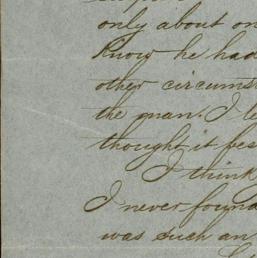 only about on
Know he had
other circums
the man. I le
thought it bes
I think
I never found
was such an